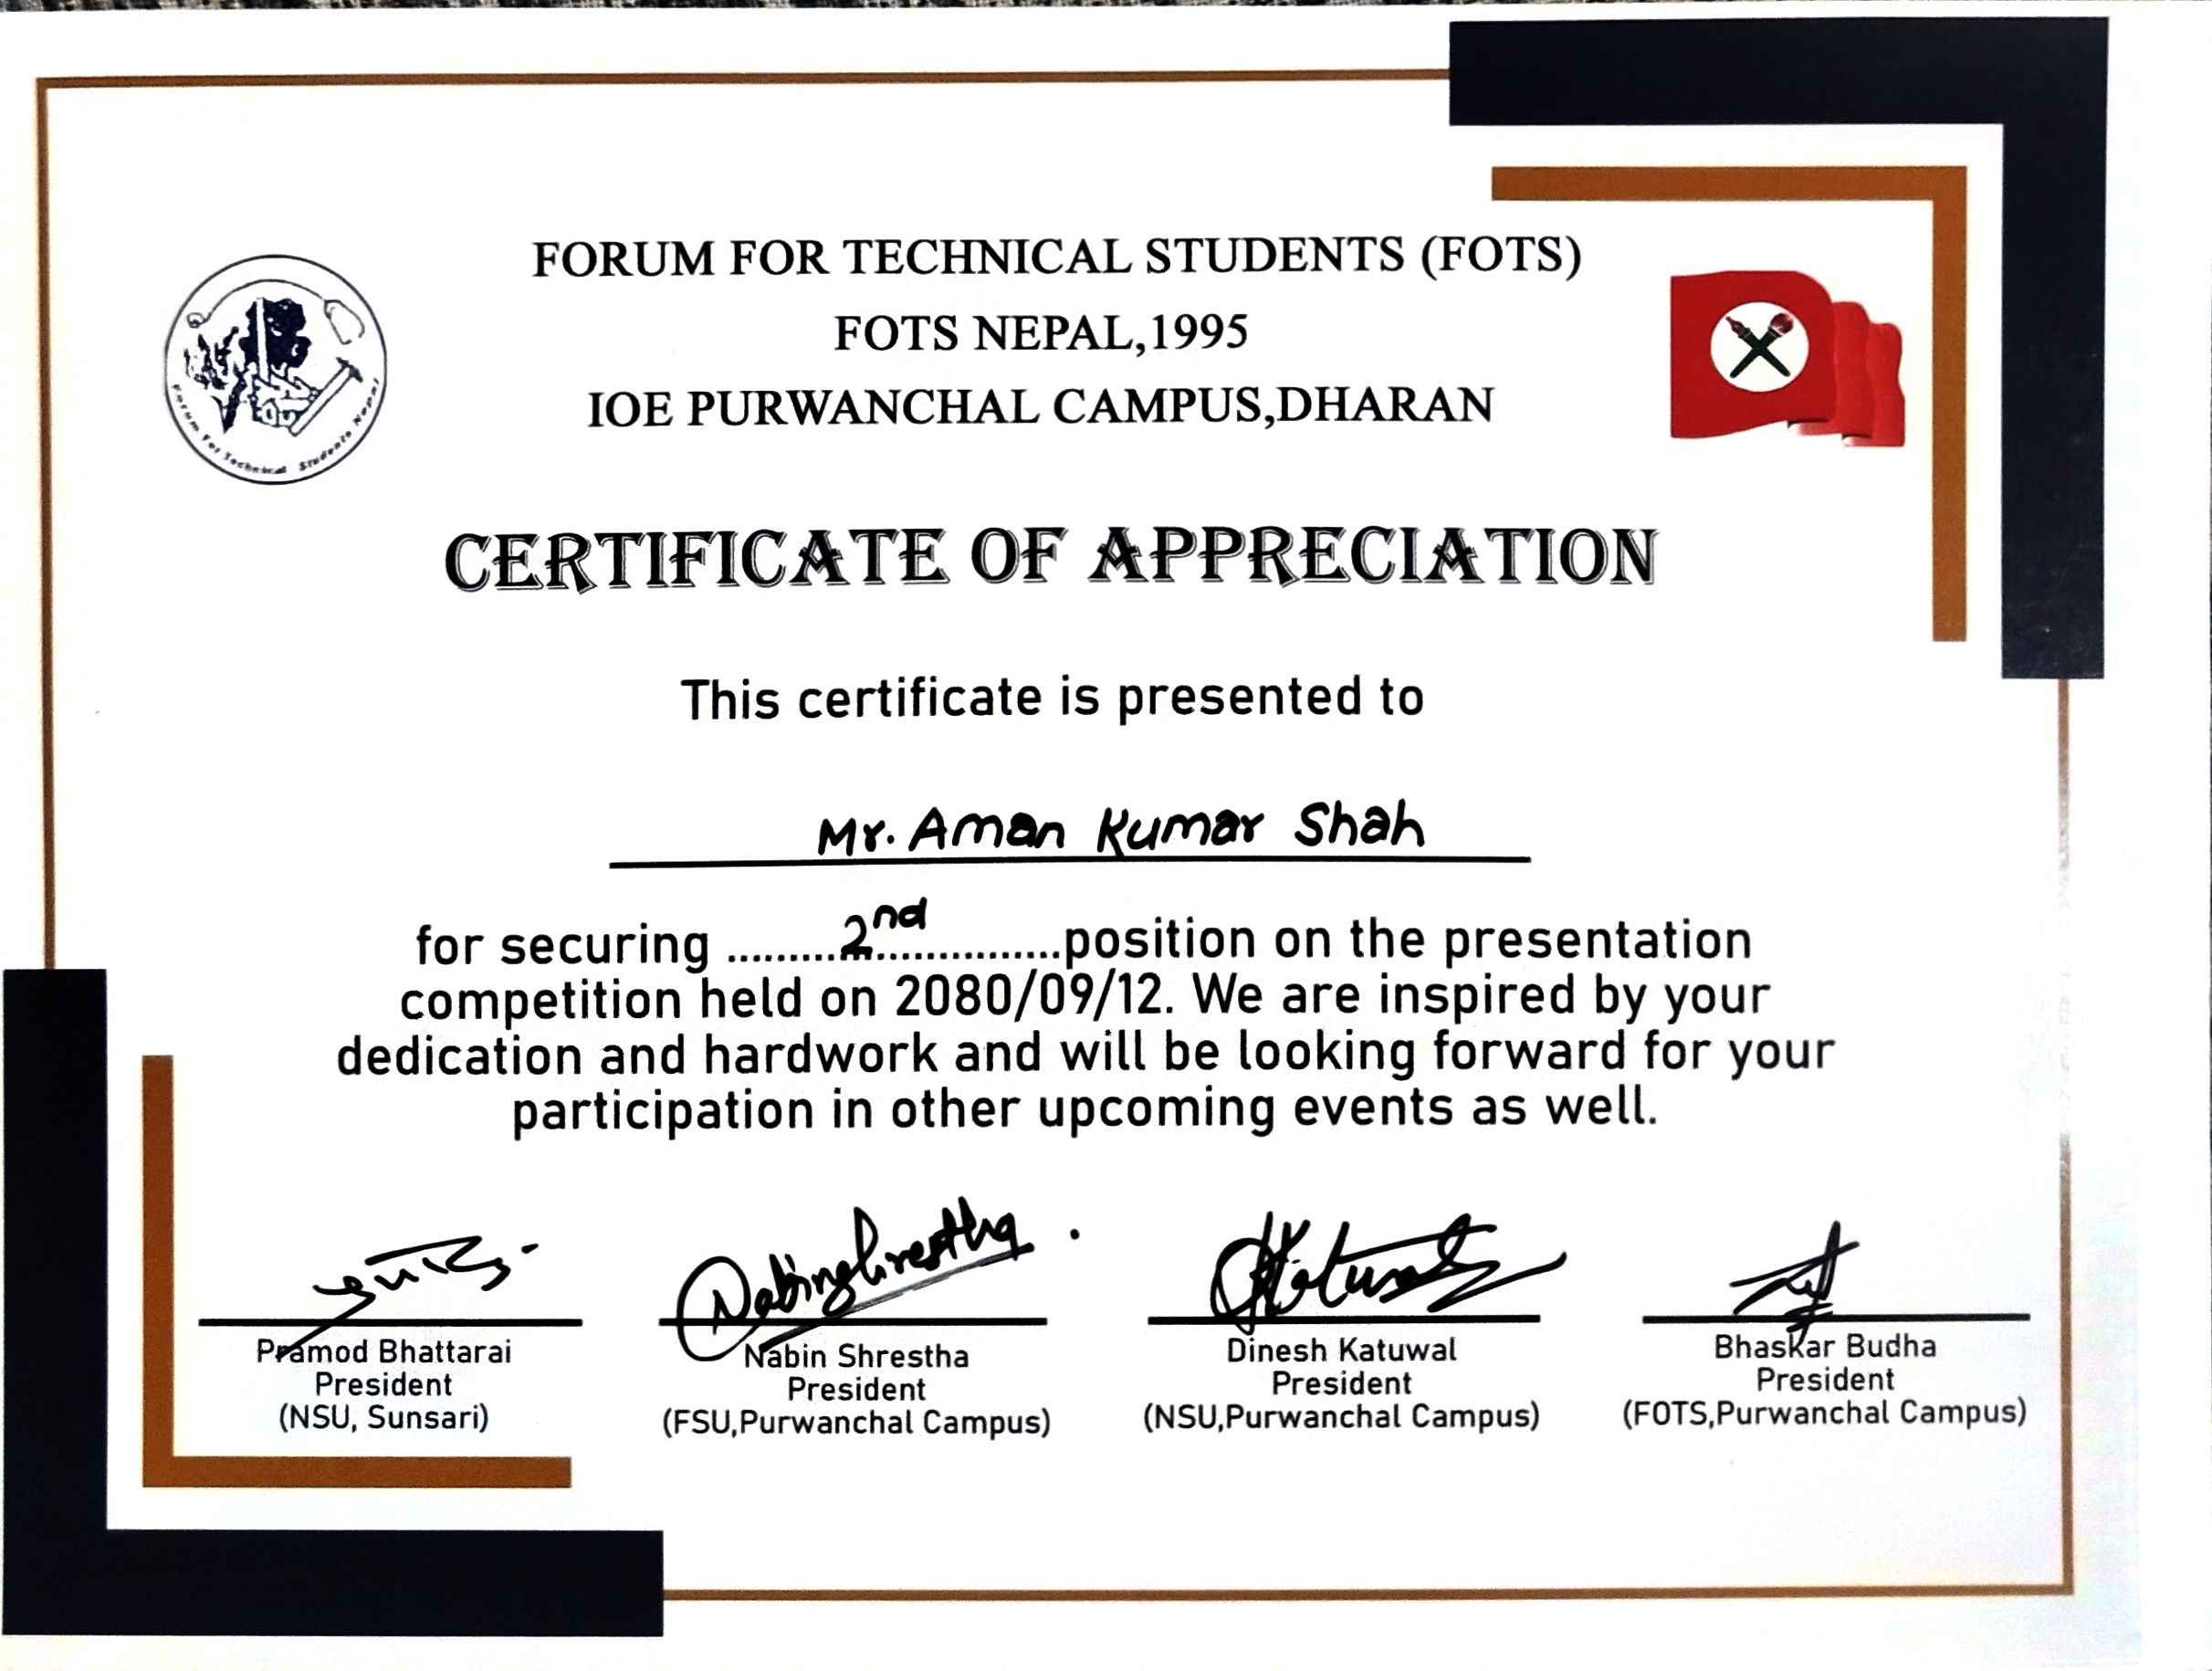 FORUM FOR TECHNICAL STUDENTS (FOTS)
FOTS NEPAL,1995
IOE PURWANCHAL CAMPUS,DHARAN
Forum For Technical Students Nepal
CERTIFICATE OF APPRECIATION
This certificate is presented to
Mr. Aman Kumar Shah
for securing .........2nd...............position on the presentation
competition held on 2080/09/12. We are inspired by your
dedication and hardwork and will be looking forward for your
participation in other upcoming events as well.
Nabin Shrestha
Katuwal
Pramod Bhattarai
President
(NSU, Sunsari)
Nabin Shrestha
President
(FSU,Purwanchal Campus)
Dinesh Katuwal
President
(NSU,Purwanchal Campus)
Bhaskar Budha
President
(FOTS,Purwanchal Campus)